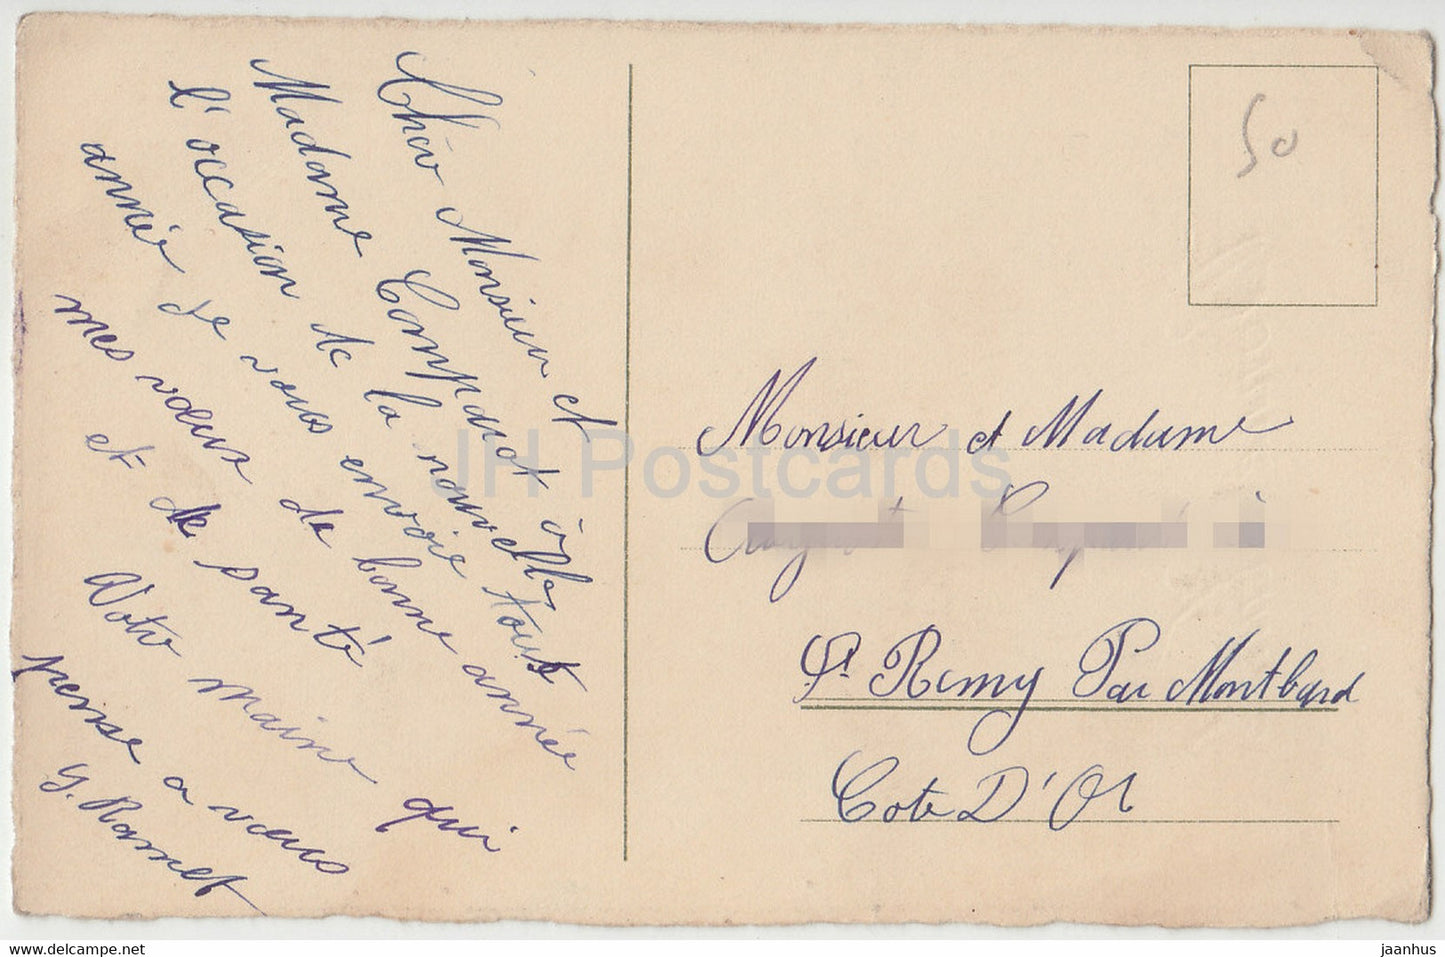 Cher Monsieur et
Madame Compagnot à
l'occasion de la nouvelle
année de vous envoie tout
mes voeux de bonne année
et de santé
Votre maine qui
pense a vous
G. Ramet
50
Monsieur et Madame
à
St Remy Par Montbard
Cote D'Or
JH Postcards
www.delcampe.net
jaanhus